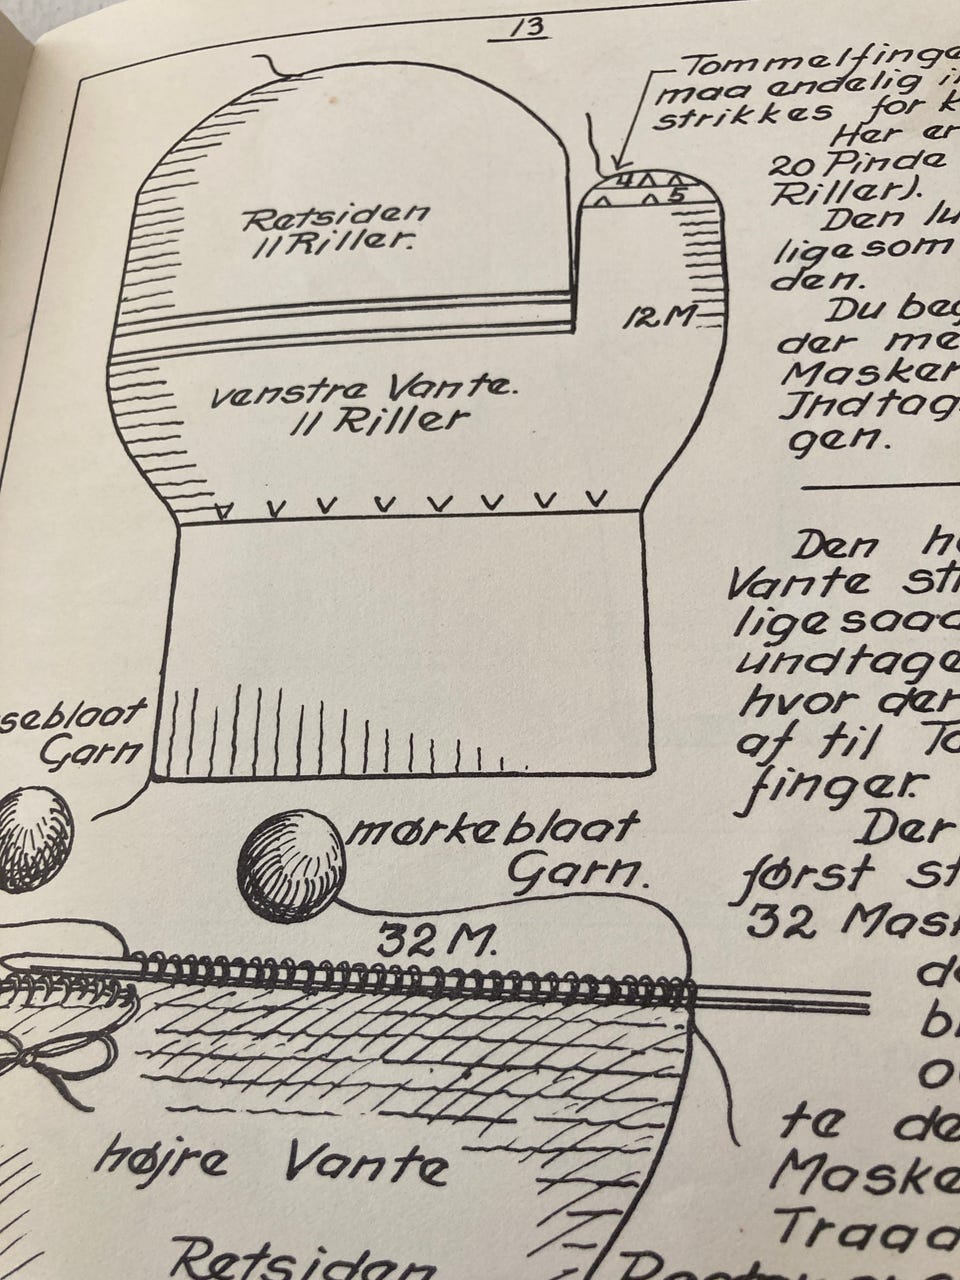 13
Tommelfinge
maa endelig i
strikkes for k
Her er
20 Pinde
Riller).
Den lu
ligesom
den.
Du beg
der me
Masker
Indtag
gen.
4
5
Retsiden
11 Riller.
12 M
venstre Vante.
11 Riller
Den hø
Vante str
lige saad
undtage
hvor der
af til To
finger.
Der
først st
32 Mask
de
bl
o
te de
Maske
Traad
seblaat
Garn
mørkeblaat
Garn.
32 M.
højre Vante
Retsiden